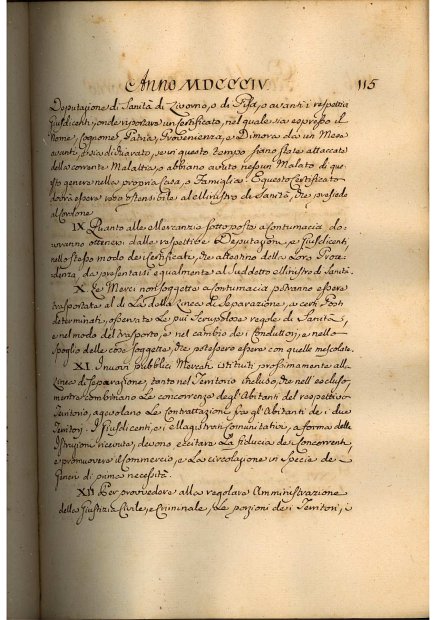 Anno MDCCCIV 115
Deputazione di Sanità di Livorno, o di Pisa, o avanti i respettivi
Giusdicenti, onde riportare un Certificato, nel quale sia espresso il
Nome, Cognome, Patria, Provenienza, e Dimora da un Mese
avanti, e sia dichiarato, se in questo tempo siano state attaccate
della corrente Malattia, o abbiano avuto nessun Malato di que-
sto genere nella propria Casa, o Famiglia: E questo Certificato
dovrà essere reso ostensibile al Ministro di Sanità, che presiede
al Cordone.
IX. Quanto alle Mercanzie sottoposte a contumacia, do-
vranno ottenersi dalle respettive Deputazioni, e Giusdicenti,
nello stesso modo dei Certificati, che attestino della Loro Prove-
nienza, da presentarsi egualmente al suddetto Ministro di Sanità.
X. Le Merci non soggette a contumacia potranno essere
trasportate al di La della Linea di Separazione, a certi Posti
determinati, osservate Le più scrupolose regole di Sanità,
e nel modo del trasporto, e nel cambio dei Conduttori, e nello
spoglio delle cose soggette, che potessero essere con quelle mescolate.
XI. I nuovi pubblici Mercati istituiti prossimamente alla
Linea di Separazione, tanto nel Territorio incluso, che nell' escluso,
mentre combinano Le concorrenze degl'Abitanti del respettivo
Territorio, agevolano Le contrattazioni fra gl'Abitanti dei due
Territorj. I Giusdicenti, e i Magistrati Comunitativi, a forma delle
Istruzioni ricevute, devono eccitare La fiducia dei Concorrenti,
e promuovere il Commercio, e La circolazione in specie de-
Generi di prima necessità.
XII Per provvedere alla regolare Amministrazione
della Giustizia Civile, e Criminale, Le porzioni dei Territorj, i